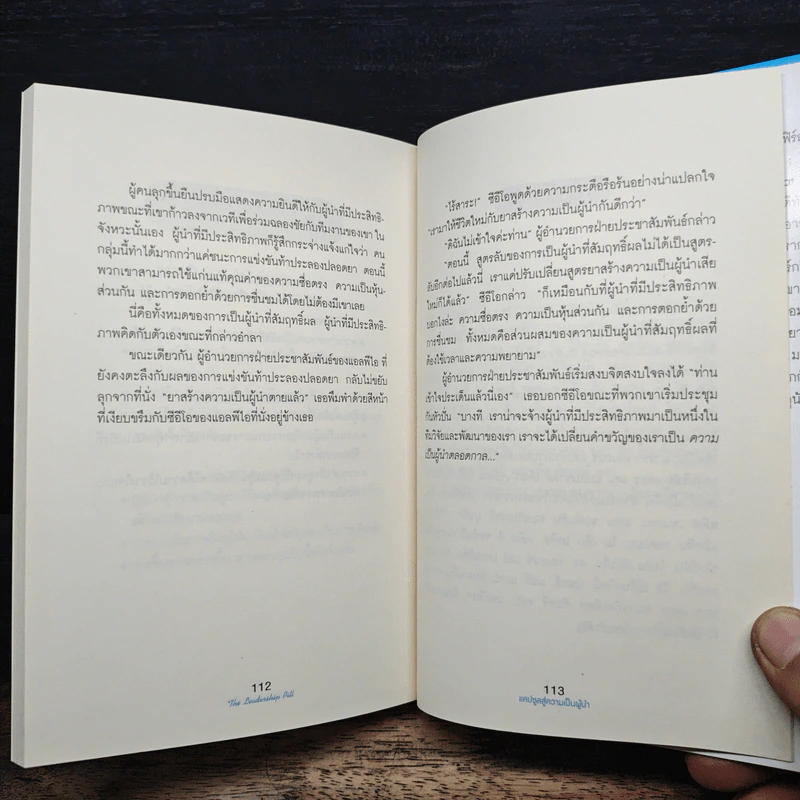 ผู้คนลุกขึ้นยืนปรบมือแสดงความยินดีให้กับผู้นำที่มีประสิทธิ-
ภาพขณะที่เขาก้าวลงจากเวทีเพื่อร่วมฉลองชัยกับทีมงานของเขา ใน
จังหวะนั้นเอง ผู้นำที่มีประสิทธิภาพก็รู้สึกกระจ่างแจ้งแก่ใจว่า คน
กลุ่มนี้ทำได้มากกว่าแค่ชนะการแข่งขันท้าประลองปลอดยา ตอนนี้
พวกเขาสามารถใช้แก่นแท้คุณค่าของความซื่อตรง ความเป็นหุ้น-
ส่วนกัน และการตอกย้ำด้วยการชื่นชมได้โดยไม่ต้องมีเขาเลย
นี่คือทั้งหมดของการเป็นผู้นำที่สัมฤทธิ์ผล ผู้นำที่มีประสิทธิ-
ภาพคิดกับตัวเองขณะที่กล่าวอำลา
ขณะเดียวกัน ผู้อำนวยการฝ่ายประชาสัมพันธ์ของแอลพีไอ ที่
ยังคงตะลึงกับผลของการแข่งขันท้าประลองปลอดยา กลับไม่ขยับ
ลุกจากที่นั่ง "ยาสร้างความเป็นผู้นำตายแล้ว" เธอพึมพำด้วยสีหน้า
ที่เงียบขรึมกับซีอีโอของแอลพีไอที่นั่งอยู่ข้างเธอ
112
The Leadership Pill
"ไร้สาระ!" ซีอีโอพูดด้วยความกระตือรือร้นอย่างน่าแปลกใจ
"เรามาให้ชีวิตใหม่กับยาสร้างความเป็นผู้นำกันดีกว่า"
"ดิฉันไม่เข้าใจค่ะท่าน" ผู้อำนวยการฝ่ายประชาสัมพันธ์กล่าว
"ตอนนี้ สูตรลับของการเป็นผู้นำที่สัมฤทธิ์ผลไม่ได้เป็นสูตร-
ลับอีกต่อไปแล้วนี่ เราแค่ปรับเปลี่ยนสูตรยาสร้างความเป็นผู้นำเสีย
ใหม่ก็ได้แล้ว" ซีอีโอกล่าว "ก็เหมือนกับที่ผู้นำที่มีประสิทธิภาพ
บอกไงล่ะ ความซื่อตรง ความเป็นหุ้นส่วนกัน และการตอกย้ำด้วย
การชื่นชม ทั้งหมดคือส่วนผสมของความเป็นผู้นำที่สัมฤทธิ์ผลที่
ต้องใช้เวลาและความพยายาม"
ผู้อำนวยการฝ่ายประชาสัมพันธ์เริ่มสงบจิตสงบใจลงได้ "ท่าน
เข้าใจประเด็นแล้วนี่เอง" เธอบอกซีอีโอขณะที่พวกเขาเริ่มประชุม
กันหัวปั่น "บางที เราน่าจะจ้างผู้นำที่มีประสิทธิภาพมาเป็นหนึ่งใน
ทีมวิจัยและพัฒนาของเรา เราจะได้เปลี่ยนคำขวัญของเราเป็น ความ
เป็นผู้นำตลอดกาล..."
113
แคปซูลสู่ความเป็นผู้นำ